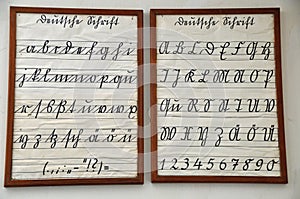 Deutsche Schrift
a b c d e f g h i
j k l m n o p q u
r s ß t u v w x
y z tz sch ä ö ü
( . , ; : - " ! ? ) =
Deutsche Schrift
A B C D E F G H
I J K L M N O P
Qu R S T U V
W X Y Z Ä Ö Ü
1 2 3 4 5 6 7 8 9 0